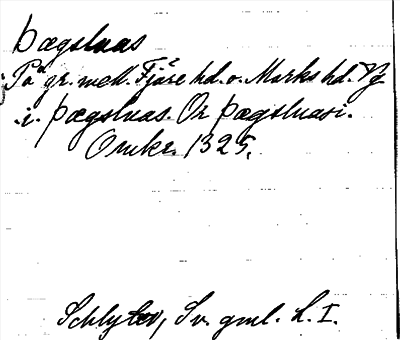 þægsluas
På gr. mell. Fjäre hd. o. Marks hd. Vg.
i. þægsluas. Or þægsluasi.
Omkr. 1325.
Schlyter, Sv. gml. L. I.